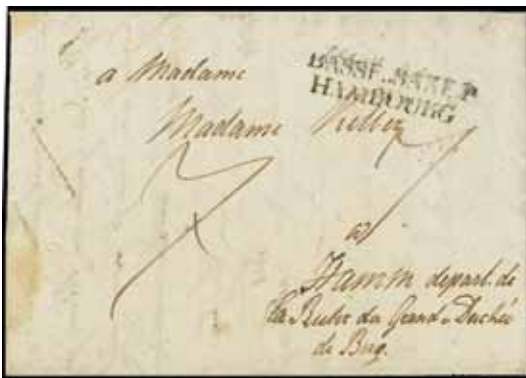 a Madame
BASSE..SAXE P
HAMBOURG
Madame
a
Hamm depart. de
la Ruhr du Grand-Duchée
de Brg.